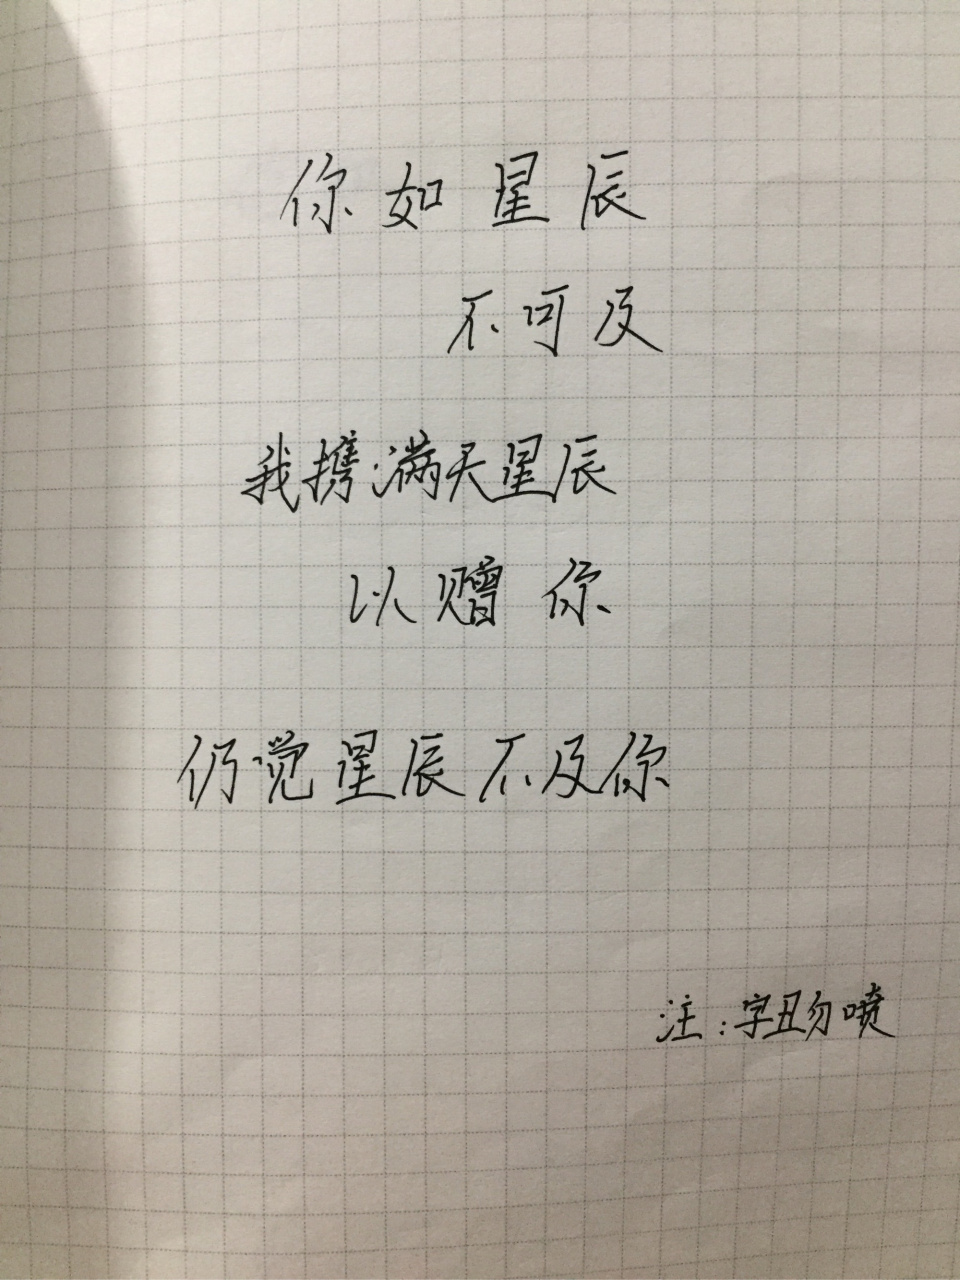 你如星辰
不可及
我携满天星辰
以赠你
仍觉星辰不及你
注：字丑勿喷